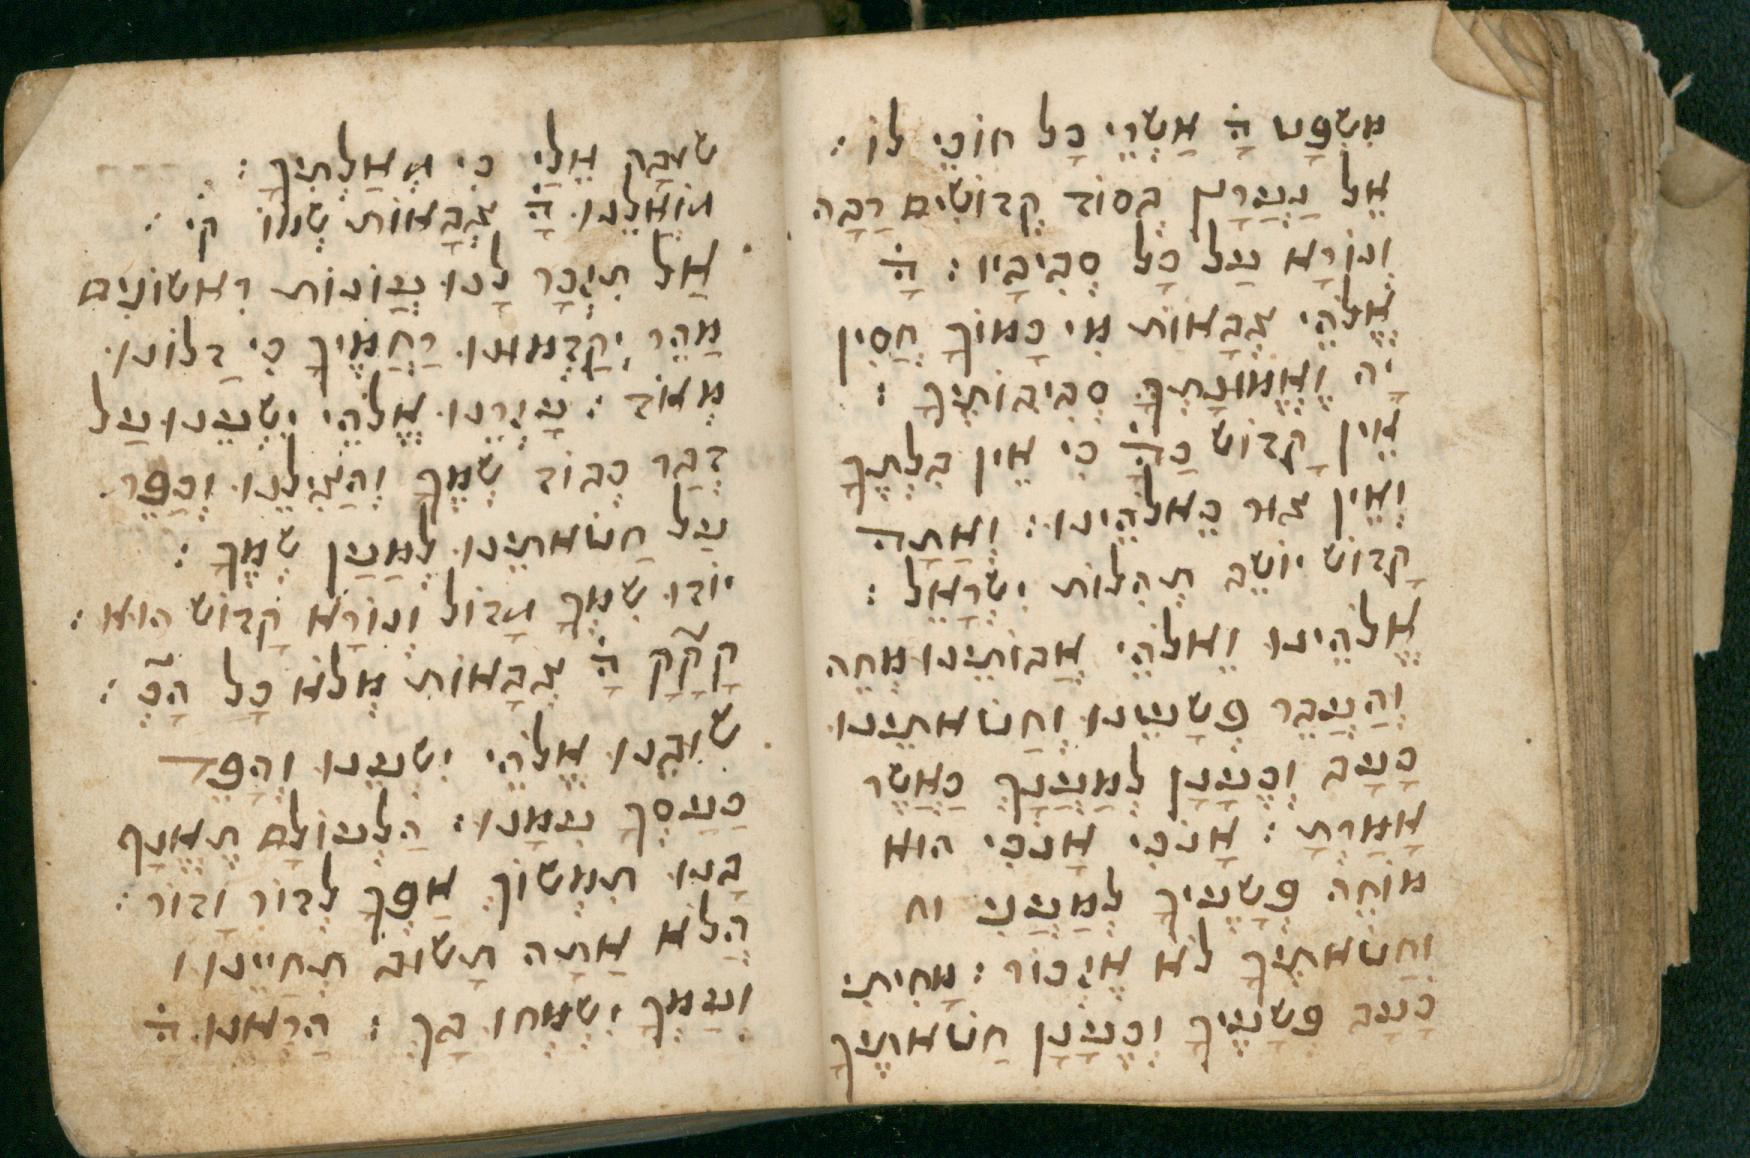 מִשְׁפָּט הָ֗ אַשְׁרֵי כָּל חוֹכֵי לוֹ :
אֵל נַעֲרָץ בְּסוֹד קְדוֹשִׁים רַבָּה
וְנוֹרָא עַל כָּל סְבִיבָיו : הָ֗
אֱלֹהֵי צְבָאוֹת מִי כָמוֹךָ חֲסִין
יָה וֶאֱמוּנָתְךָ סְבִיבוֹתֶיךָ :
אֵין קָדוֹשׁ כַּהָ֗ כִּי אֵין בִּלְתֶּךָ
וְאֵין צוּר כֵּאלֹהֵינוּ : וְאַתָּה
קָדוֹשׁ יוֹשֵׁב תְּהִלּוֹת יִשְׂרָאֵל :
אֱלֹהֵינוּ וֵאלֹהֵי אֲבוֹתֵינוּ מְחֵה
וְהַעֲבֵר פְּשָׁעֵינוּ וְחַטֹּאתֵינוּ
כָּעָב וְכֶעָנָן לְמַעֲנָךְ כַּאֲשֶׁר
אָמַרְתָּ : אָנֹכִי אָנֹכִי הוּא
מוֹחֶה פְּשָׁעֶיךָ לְמַעֲנִי וח
וְחַטֹּאתֶיךָ לֹא אֶזְכּוֹר : מָחִיתִי
כָּעָב פְּשָׁעֶיךָ וְכֶעָנָן חַטֹּאתֶיךָ
שׁוּבָה אֵלַי כִּי גְאַלְתִּיךָ :
גּוֹאֲלֵנוּ הָ֗ צְבָאוֹת שְׁמוֹ קי :
אַל תִּזְכָּר לָנוּ עֲוֹנוֹת רִאשׁוֹנִים
מַהֵר יְקַדְּמוּנוּ רַחֲמֶיךָ כִּי דַלּוֹנוּ
מְאוֹד : עָזְרֵנוּ אֱלֹהֵי יִשְׁעֵנוּ עַל
דְּבַר כְּבוֹד שְׁמֶךָ וְהַצִּילֵנוּ וְכַפֵּר
עַל חַטֹּאתֵינוּ לְמַעַן שְׁמֶךָ :
יוֹדוּ שִׁמְךָ גָּדוֹל וְנוֹרָא קָדוֹשׁ הוּא :
קָקָקָ הָ֗ צְבָאוֹת מְלֹא כָל הָכְ :
שׁוּבֵנוּ אֱלֹהֵי יִשְׁעֵנוּ וְהָפֵר
כַּעַסְךָ עִמָּנוּ : הַלְעוֹלָם תֶּאֱנַף
בָּנוּ תִּמְשׁוֹךְ אַפְּךָ לְדוֹר וָדוֹר :
הֲלֹא אַתָּה תָּשׁוּב תְּחַיֵּינוּ ו
וְעַמְּךָ יִשְׂמְחוּ בָךְ : הַרְאֵנוּ הָ֗